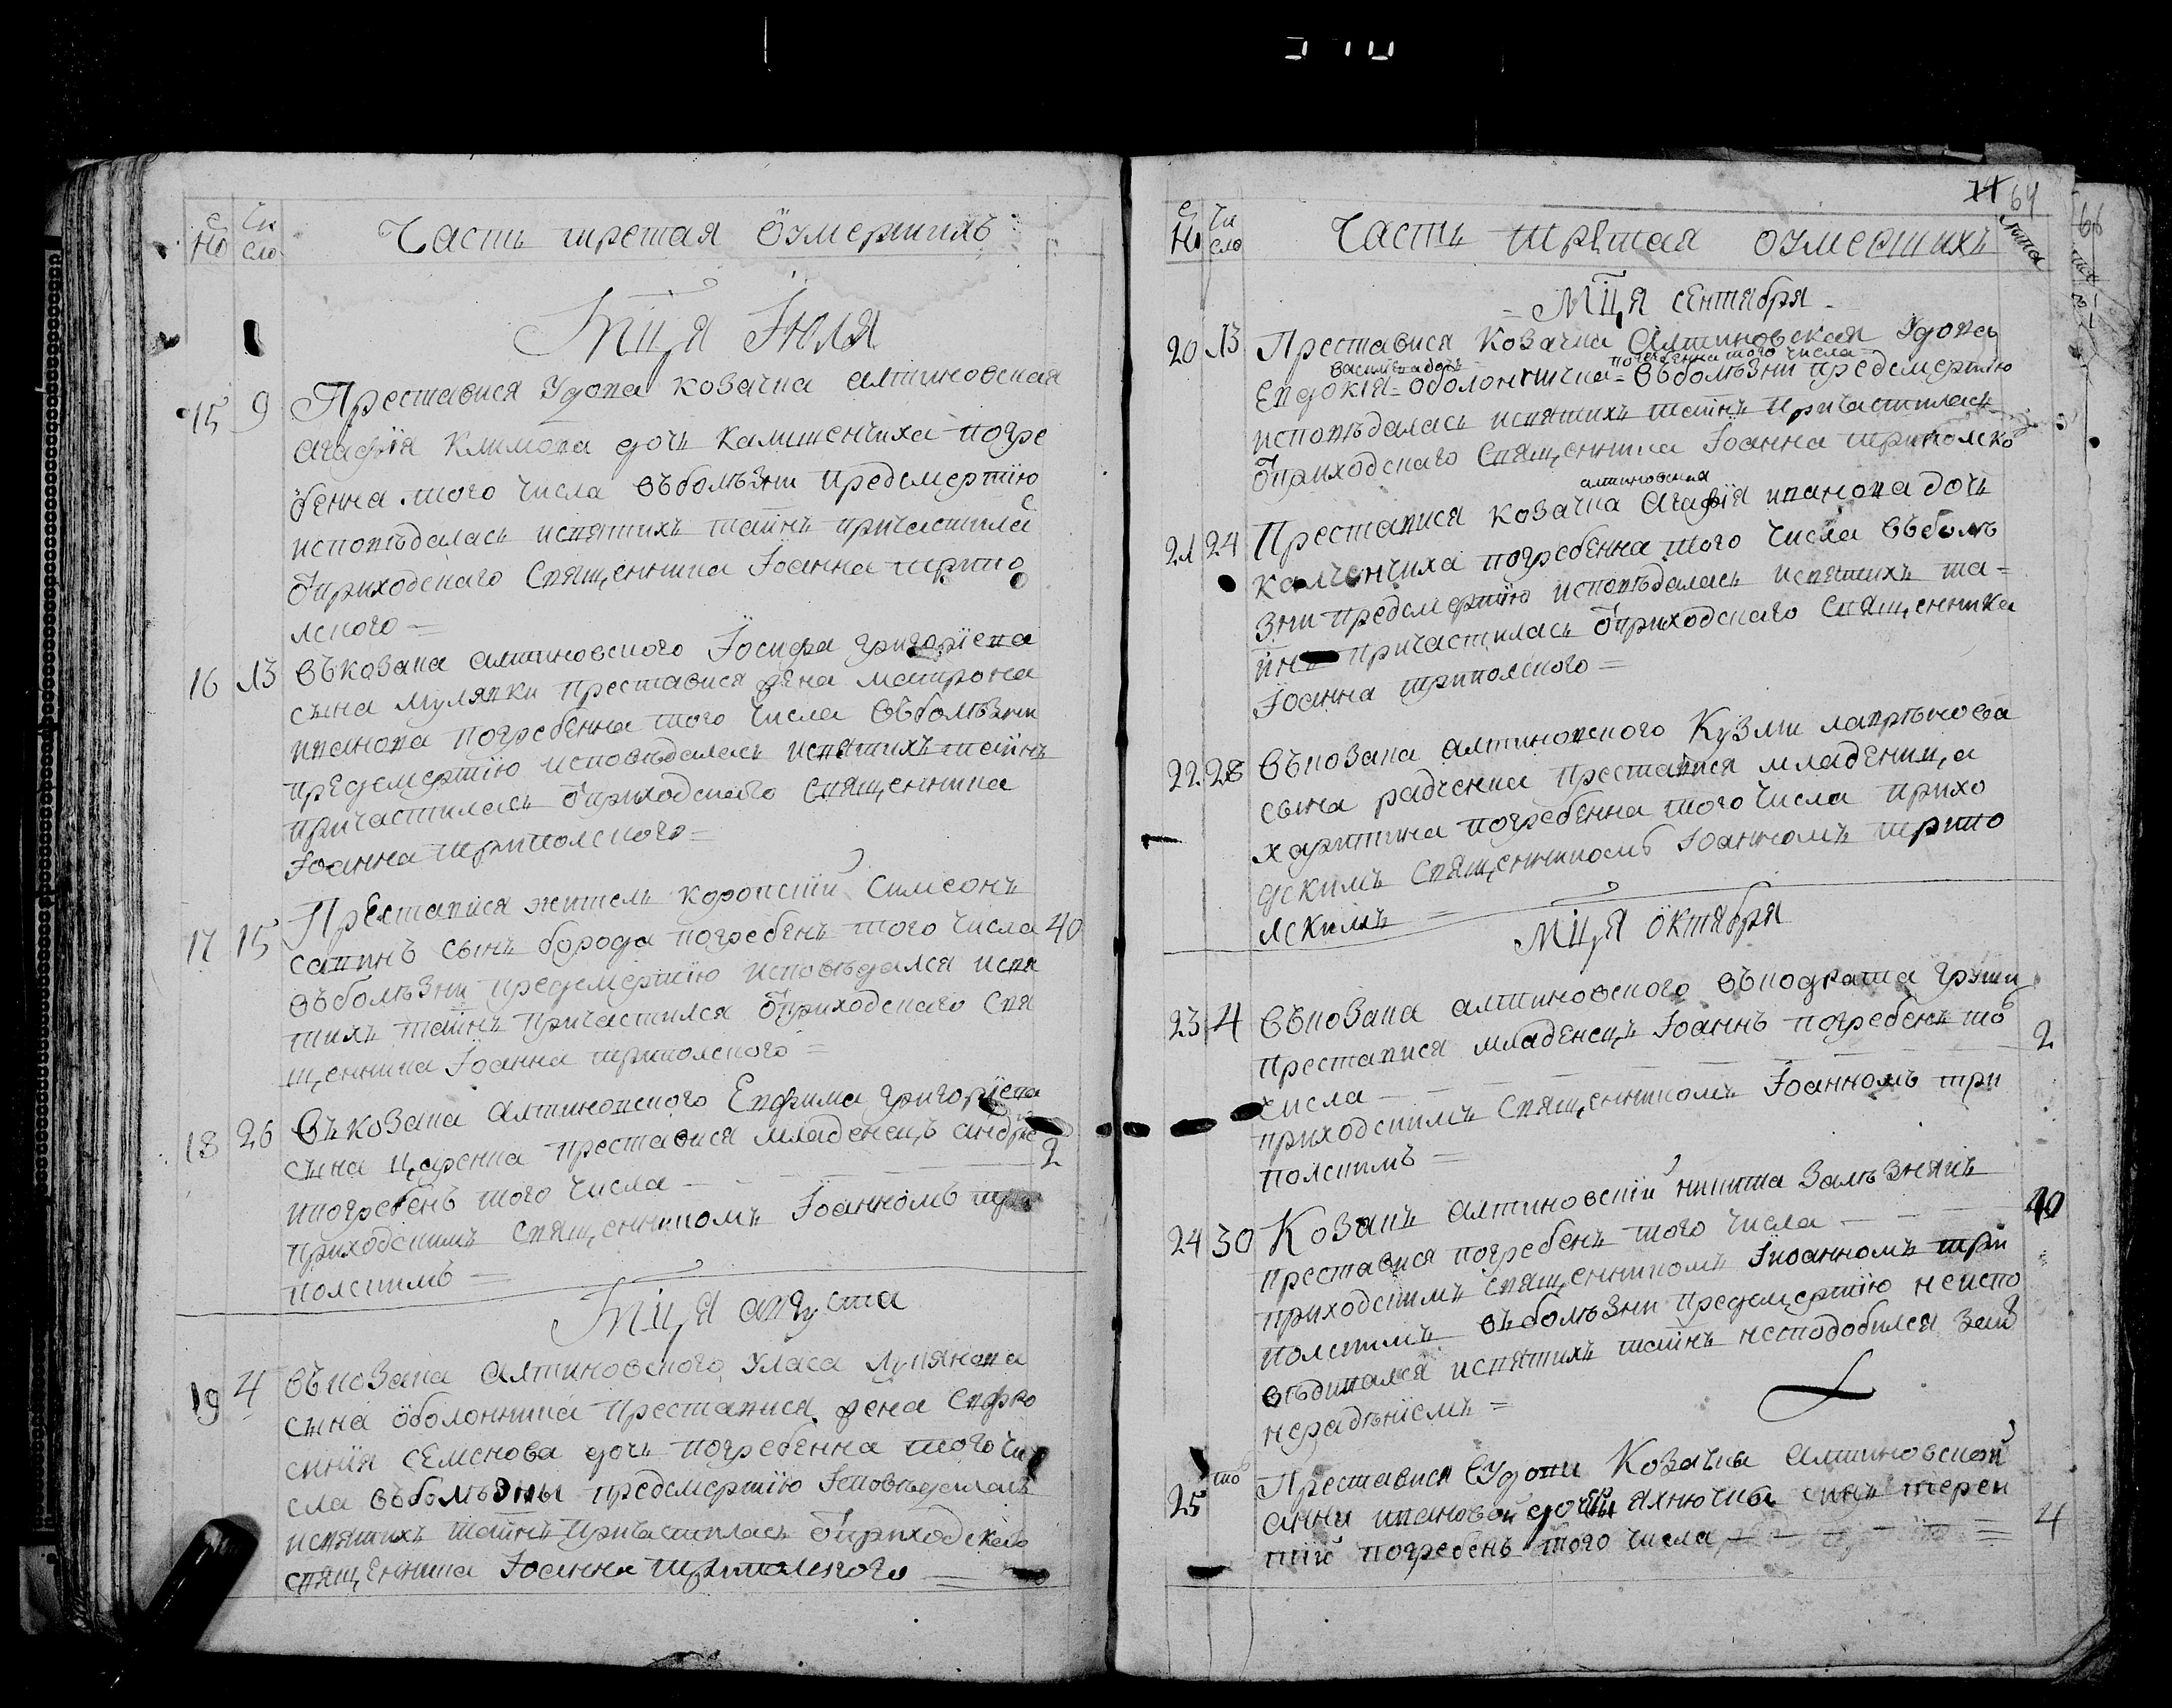 Но
Чи
сло
Часть третая о умершихъ
Мца Июля
15 9 Преставися Удова козачка алтиновская
Агафия Климова дочь Калишенчиха погре
бенна того числа въболѣзни предсмертию
исповѣдалась исвятихъ таинъ причастилас
отприходскаго Священника Иоанна трипо
лского =
16 13 Въ козака алтиновского Иосифа григориева
сына мулявки преставися жена матрона
иванова погребенна того числа въболѣзни
предсмертию исповѣдалась исвятихъ таинъ
причастилась отприходскаго Священника
Иоанна трипольского =
17 15 Преставися житель коропский Симеонъ
савинъ сынъ борода погребенъ того числа 40
въболѣзни предсмертию исповѣдался исвя
тихъ таинъ причастился отприходскаго Свя
щенника Иоанна трипольского =
18 26 Въ козака алтиновского Евфима григориева
сына царенка преставися младенецъ андрей
ипогребенъ того числа 2
приходскимъ Священникомъ Иоанномъ три
полскимъ =
Мца августа
19 4 Въкозака алтиновского Уласа Лукянова
сына оболонника преставися жена Евфро
синия Семенова дочь погребенна того чи
сла въболѣзны предсмертию Исповѣдалась
исвятихъ таинъ причастилась отприходского
священника Иоанна Триполского =
64
Но
Чи
сло
Часть третая о умершихъ
Лѣта
Мца сентября
20 13 Преставися Козачка Алтиновская Удова
василева дочь погребенна того числа
Евдокия = оболонничка = въболѣзни предсмертию
исповѣдалась исвятихъ таинъ причастилась
отприходскаго Священника Иоанна триполско
алтиновская
21 24 Преставися козачка Агафия иванова дочь
калченчиха погребенна того числа въболѣ
зни предсмертию исповѣдалась исвятихъ та =
инъ причастилась отприходскаго Священника
Иоанна триполского =
22 28 Въкозака алтиновского Кузми лаврѣнова
сына радченка преставися младеница
харитина погребенна того числа прихо
дскимъ Священникомъ Иоанномъ трипо
лскимъ =
Мца октября
23 4 Въкозака алтиновского въкодрата груши
преставися младенецъ Иоаннъ погребенъ то
числа 2
приходскимъ Священникомъ Иоанномъ три
полскимъ =
24 30 Козакъ алтиновский никита Залѣзнякъ
преставися погребенъ того числа 40
приходскимъ Священникомъ Иоанномъ три
полскимъ въболѣзни предсмертию неиспо
вѣдивался исвятихъ таинъ несподобился за
нерадѣниемъ =
25 Преставися Удови Козачки алтиновской
анни ивановой дочери синъ терен
тий погребенъ того числа 4